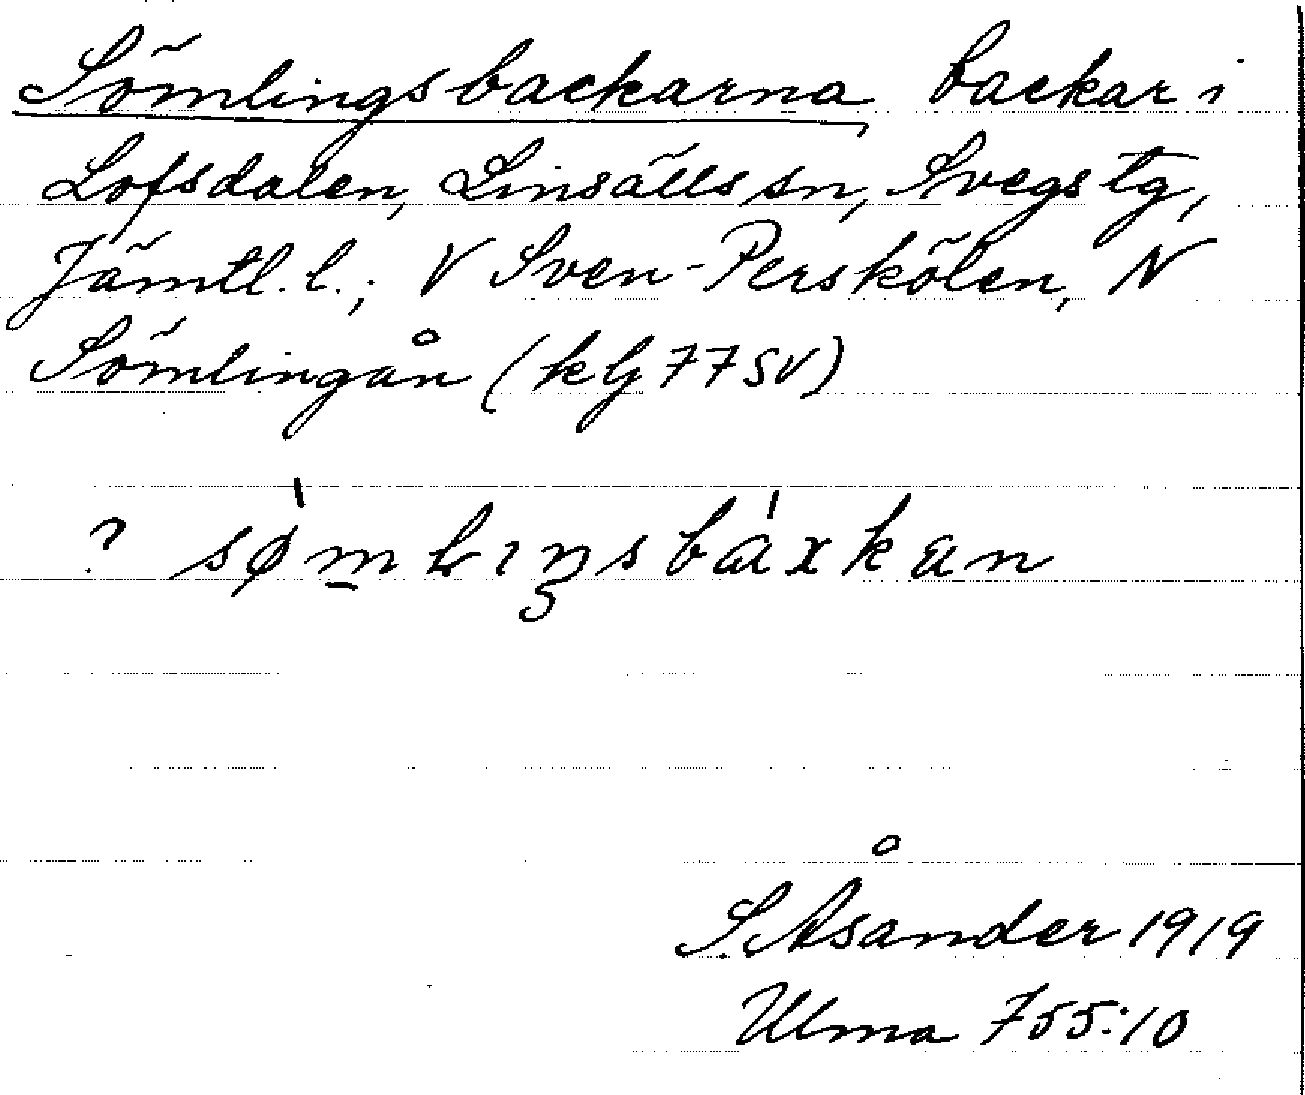 Sömlingsbackarna backar i
Lofsdalen, Linsälls sn, Svegs tg,
Jämtl. l.; V Sven-Perskölen, N
Sömlingån (kbl 77 SV)
? sømLıŋsbaxkan
S. Åsander 1919
Ulma 755:10